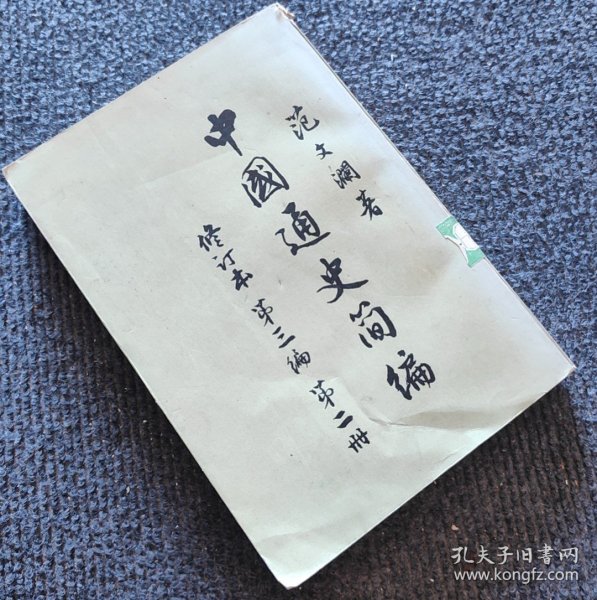 范文瀾著
中國通史简編
修订本 第三编 第二册
孔夫子旧書网
www.kongfz.com